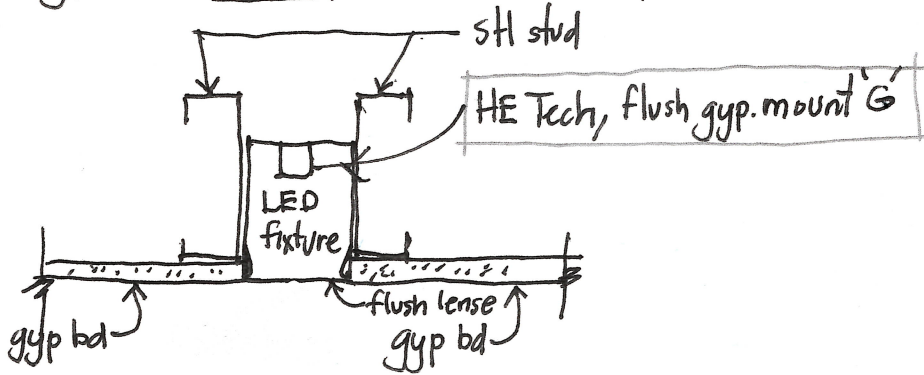 stl stud
HE Tech, flush gyp. mount 'G'
LED
fixture
flush lense
gyp bd
gyp bd